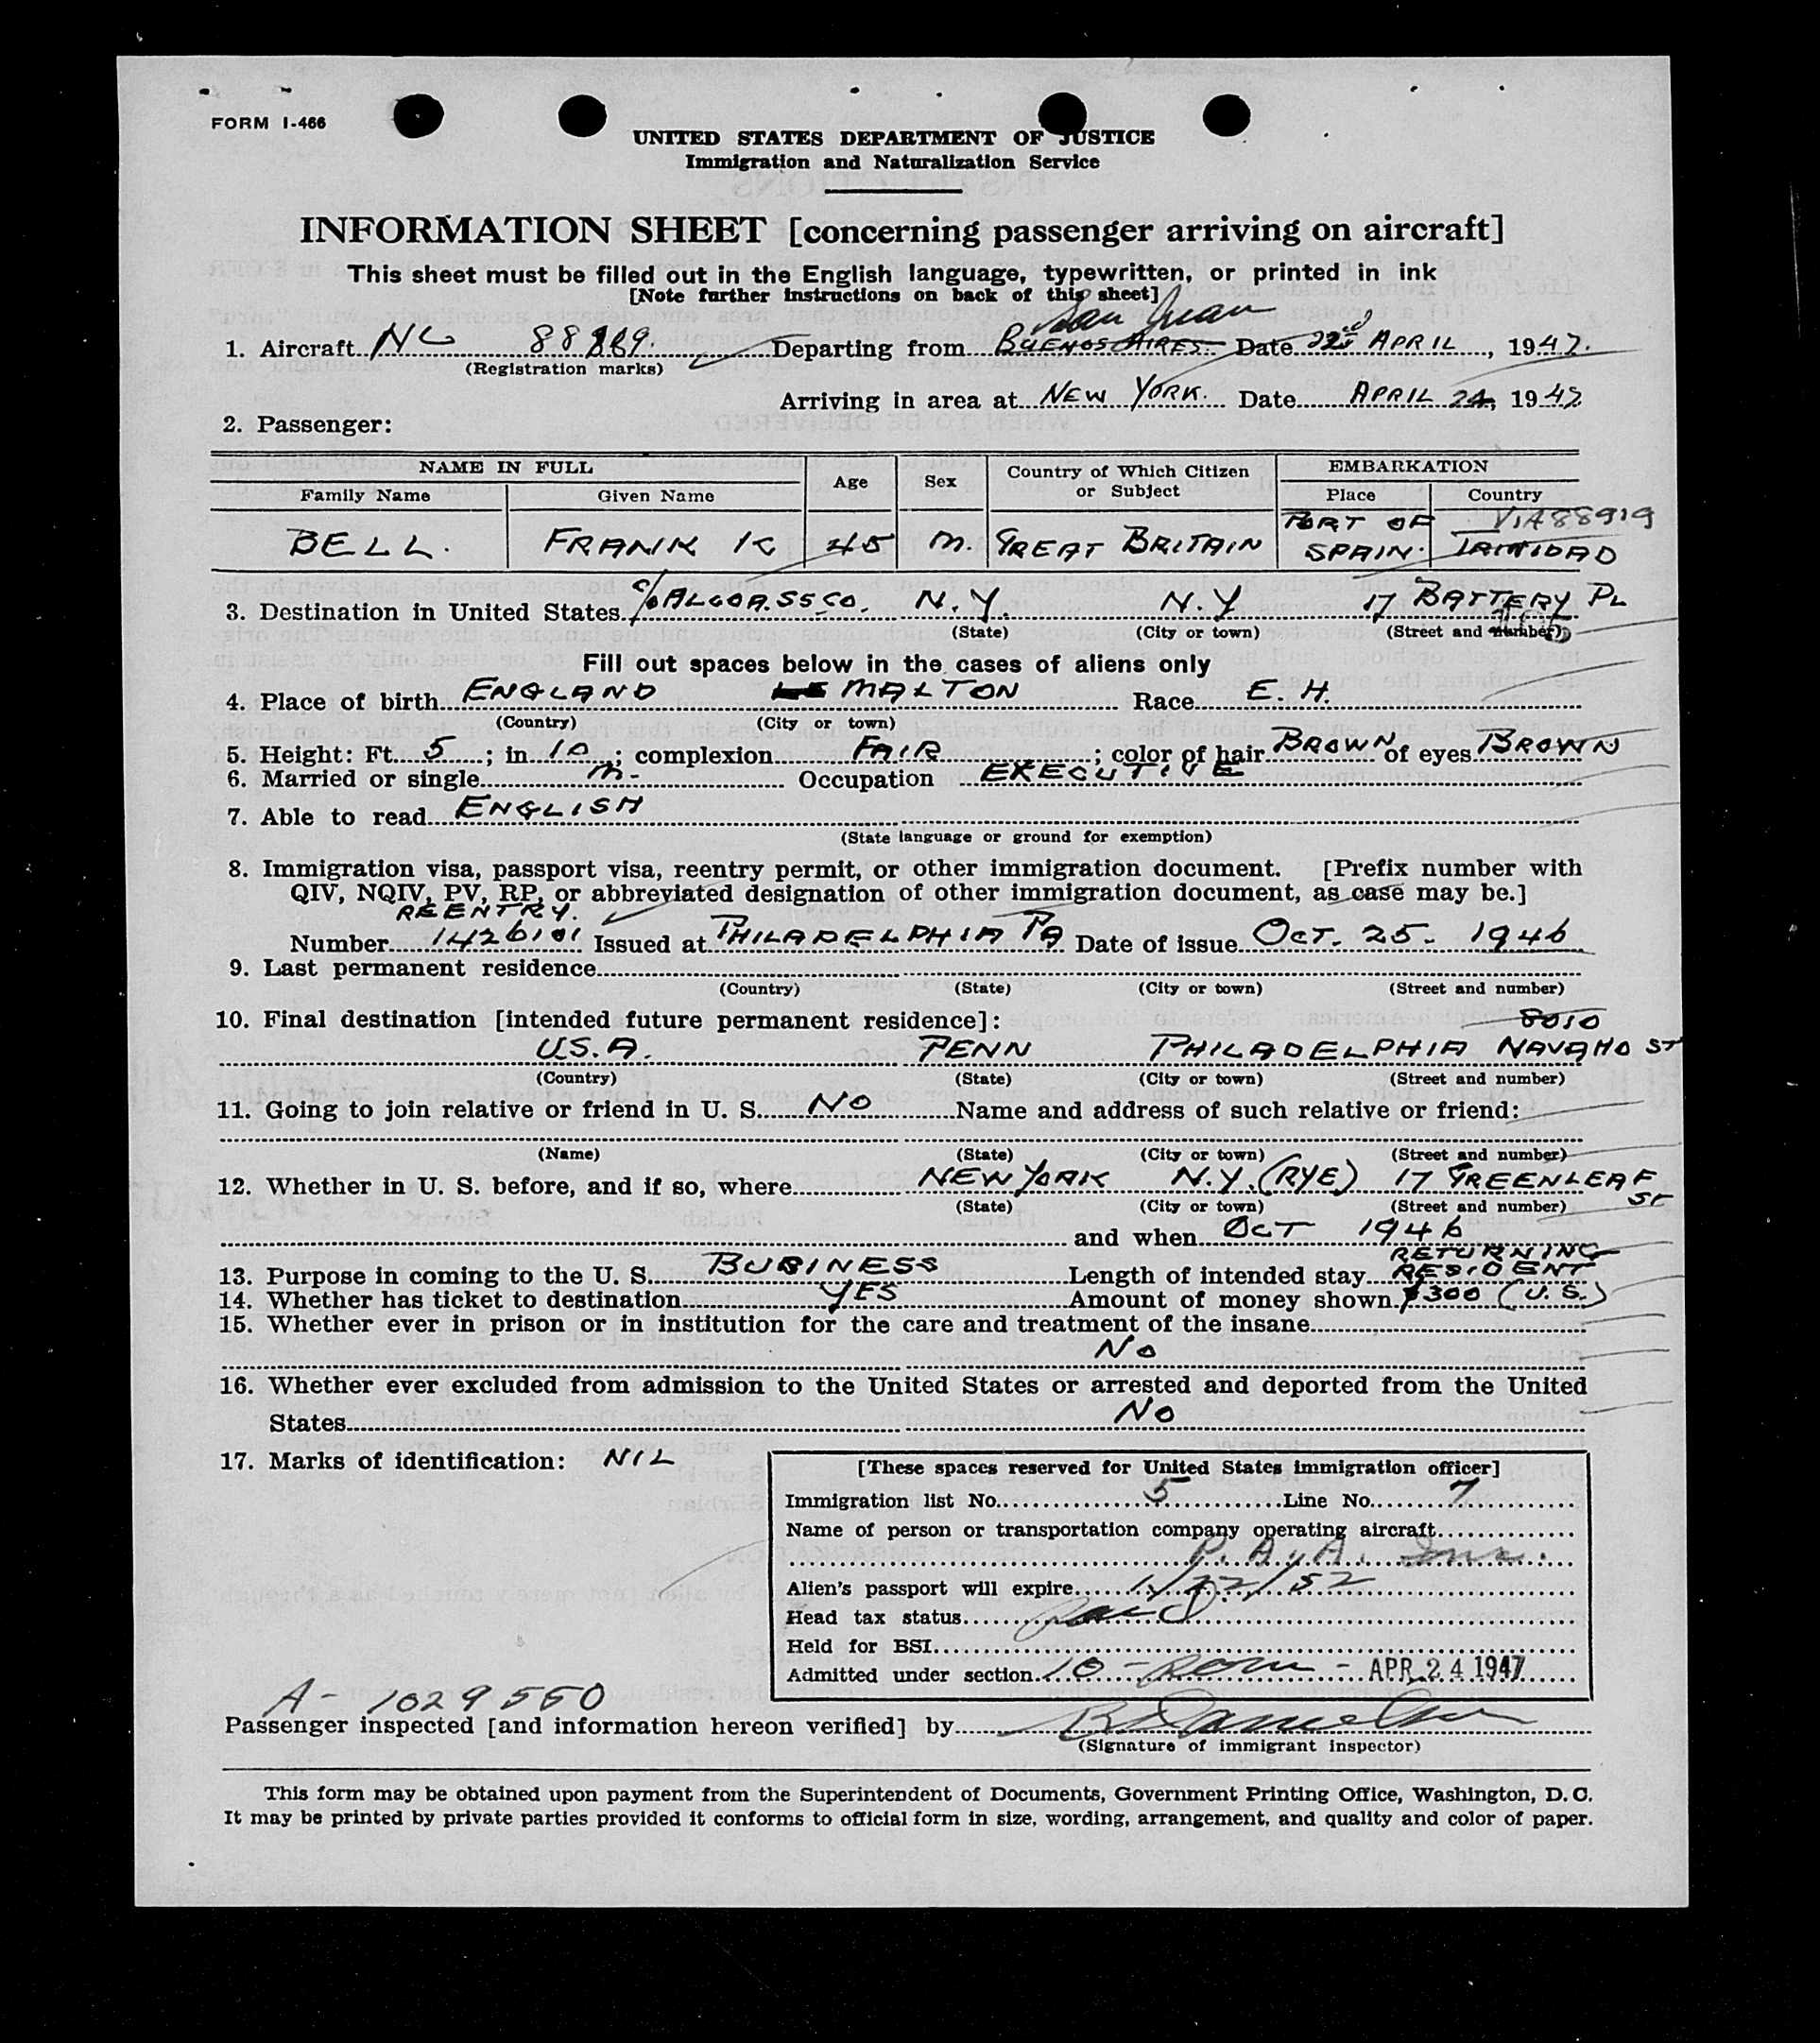 FORM I-466
UNITED STATES DEPARTMENT OF JUSTICE
Immigration and Naturalization Service
INFORMATION SHEET [concerning passenger arriving on aircraft]
This sheet must be filled out in the English language, typewritten, or printed in ink
[Note further instructions on back of this sheet]
San Juan
1. Aircraft NC Departing from BUENOS AIRES Date 22nd APRIL, 1947.
(Registration marks)
Arriving in area at NEW YORK. Date APRIL 24, 1947
2. Passenger:
NAME IN FULL Age Sex Country of Which Citizen or Subject EMBARKATION
Family Name Given Name Place Country
VIA 88919
BELL. FRANK K 45 M. GREAT BRITAIN PORT OF SPAIN. TRINIDAD
3. Destination in United States c/o ALCOA. SS. CO. N.Y. N.Y 17 BATTERY PL
(State) (City or town) (Street and number)
Fill out spaces below in the cases of aliens only
4. Place of birth ENGLAND MALTON Race E. H.
(Country) (City or town)
5. Height: Ft. 5; in 10; complexion FAIR; color of hair BROWN of eyes BROWN
6. Married or single M- Occupation EXECUTIVE
7. Able to read ENGLISH
(State language or ground for exemption)
8. Immigration visa, passport visa, reentry permit, or other immigration document. [Prefix number with
QIV, NQIV, PV, RP, or abbreviated designation of other immigration document, as case may be.]
REENTRY.
Number 1426101 Issued at PHILADELPHIA PA Date of issue OCT. 25. 1946
9. Last permanent residence
(Country) (State) (City or town) (Street and number)
10. Final destination [intended future permanent residence]:
8010
U.S.A. PENN PHILADELPHIA NAVAHO ST
(Country) (State) (City or town) (Street and number)
11. Going to join relative or friend in U. S. NO Name and address of such relative or friend:
(Name) (State) (City or town) (Street and number)
12. Whether in U. S. before, and if so, where NEW YORK N.Y. (RYE) 17 GREENLEAF ST
(State) (City or town) (Street and number)
and when OCT 1946
13. Purpose in coming to the U. S. BUSINESS Length of intended stay RETURNING RESIDENT
14. Whether has ticket to destination YES Amount of money shown $300 (U.S.)
15. Whether ever in prison or in institution for the care and treatment of the insane
NO
16. Whether ever excluded from admission to the United States or arrested and deported from the United
States NO
17. Marks of identification: NIL
[These spaces reserved for United States immigration officer]
Immigration list No. 5 Line No. 7
Name of person or transportation company operating aircraft
P. A. A. Inc.
Alien's passport will expire 1/22/52
Head tax status paid
Held for BSI
Admitted under section 10 - APR 24 1947
A- 1029550
Passenger inspected [and information hereon verified] by
(Signature of immigrant inspector)
This form may be obtained upon payment from the Superintendent of Documents, Government Printing Office, Washington, D. C.
It may be printed by private parties provided it conforms to official form in size, wording, arrangement, and quality and color of paper.